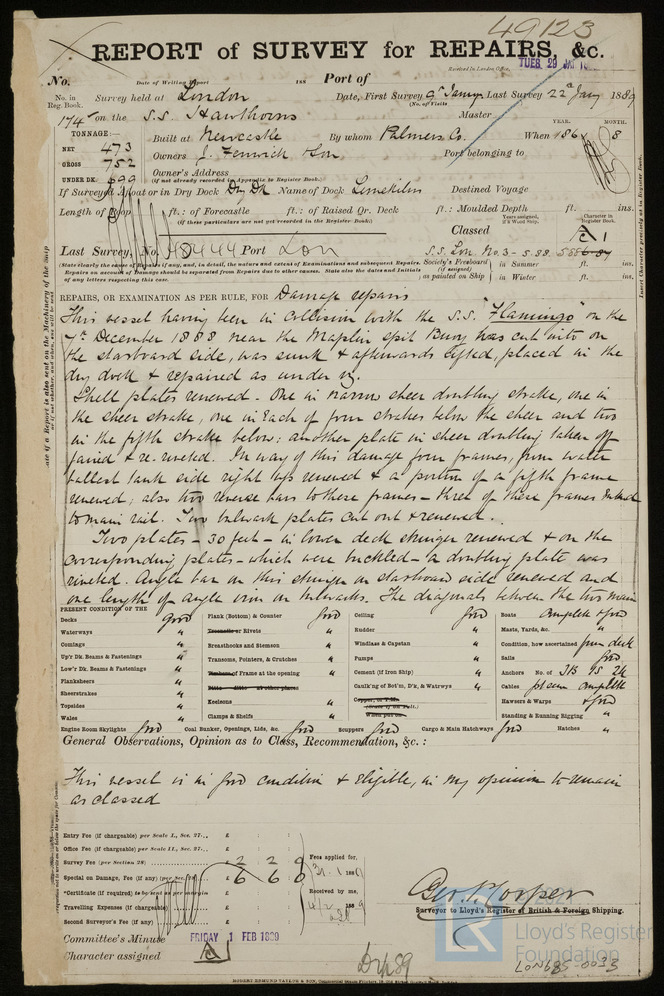 49123
REPORT of SURVEY for REPAIRS, &c.
Received in London Office, TUES. 29 JAN 18
No. Date of Writing Report 188 Port of
No. in Reg. Book. Survey held at London Date, First Survey 9th Jany Last Survey 22nd Jany 1889
(No. of Visits
174 on the S.S. Hawthorns Master
TONNAGE:— Built at Newcastle By whom Palmers Co. When 1868 YEAR. MONTH.
NET 473
GROSS 752
UNDER DK. 699
Owners J. Fenwick & Son Port belonging to
Owner's Address
(if not already recorded in Appendix to Register Book.)
If Surveyed Afloat or in Dry Dock Dry Dk Name of Dock Limekilns Destined Voyage
Length of Poop ft.: of Forecastle ft.: of Raised Qr. Deck ft.: Moulded Depth ft. ins.
(if these particulars are not yet recorded in the Register Book.)
Classed A1
Character in Register Book.
Last Survey, No. 48444 Port Lon
S.S. Lon. No. 3 - 5.88.
Society's Freeboard (if assigned) as painted on Ship in Summer ft. ins.
in Winter ft. ins.
(State clearly the cause of Repairs if any, and, in detail, the nature and extent of Examinations and subsequent Repairs.
Repairs on account of Damage should be separated from Repairs due to other causes. State also the dates and Initials
of any letters respecting this case.
REPAIRS, OR EXAMINATION AS PER RULE, FOR Damage repairs
This vessel having been in Collision with the S.S. "Flamingo" on the
7th December 1888 near the Maplin Spit Buoy was cut into on
the starboard side, was sunk & afterwards lifted, placed in the
dry dock & repaired as under viz.
Shell plates renewed - One in narrow sheer doubling strake, one in
the sheer strake, one in Each of four strakes below the sheer and two
in the fifth strake below; another plate in sheer doubling taken off
faired & re-riveted. In way of this damage four frames, from water
ballast tank side right up renewed & a portion of a fifth frame
renewed; also two reverse bars to these frames - three of these frames
to main rail. Two bulwark plates cut out & renewed.
Two plates - 30 feet - in lower deck stringer renewed & on the
corresponding plates - which were buckled - a doubling plate was
riveted. Angle bar on this stringer on starboard side renewed and
one length of angle iron on bulwarks. The diagonals between the two main
PRESENT CONDITION OF THE
Decks good Plank (Bottom) & Counter good Ceiling good Boats Complete & good
Waterways " Treenails or Rivets " Rudder " Masts, Yards, &c. "
Comings " Breasthooks and Stemson " Windlass & Capstan " Condition, how ascertained from deck
Up'r Dk. Beams & Fastenings " Transoms, Pointers, & Crutches " Pumps " Sails good
Low'r Dk. Beams & Fastenings " Timbers of Frame at the opening " Cement (if Iron Ship) " Anchors No. of 3B 1S 2K
Planksheers " Ditto ditto at other places Caulk'ng of Bot'm, D'k, & Watrwys " Cables
Sheerstrakes " Hawsers & Warps & good
Topsides " Keelsons " Standing & Running Rigging "
Wales " Clamps & Shelfs "
Engine Room Skylights good Coal Bunker, Openings, Lids, &c. good Scuppers good Cargo & Main Hatchways good Hatches "
General Observations, Opinion as to Class, Recommendation, &c.:
This vessel is in good condition & Eligible, in my opinion to remain
as classed
Entry Fee (if chargeable) per Scale I., Sec. 27... £ : :
Office Fee (if chargeable) per Scale II., Sec. 27... £ : :
Survey Fee (per Section 28) £ 2 : 2 : 0
Special on Damage, Fee (if any) (per Sec. 28) £ 6 : 6 : 0
Certificate (if required) to be sent as per margin £
Travelling Expenses (if chargeable) £
Second Surveyor's Fee (if any) £
Fees applied for,
31.1.1889
Received by me,
4/2 1889
Surveyor to Lloyd's Register of British & Foreign Shipping.
Committee's Minute FRIDAY 1 FEB 1889
Character assigned A1
© 2021
Lloyd's Register
Foundation
LON685-0033